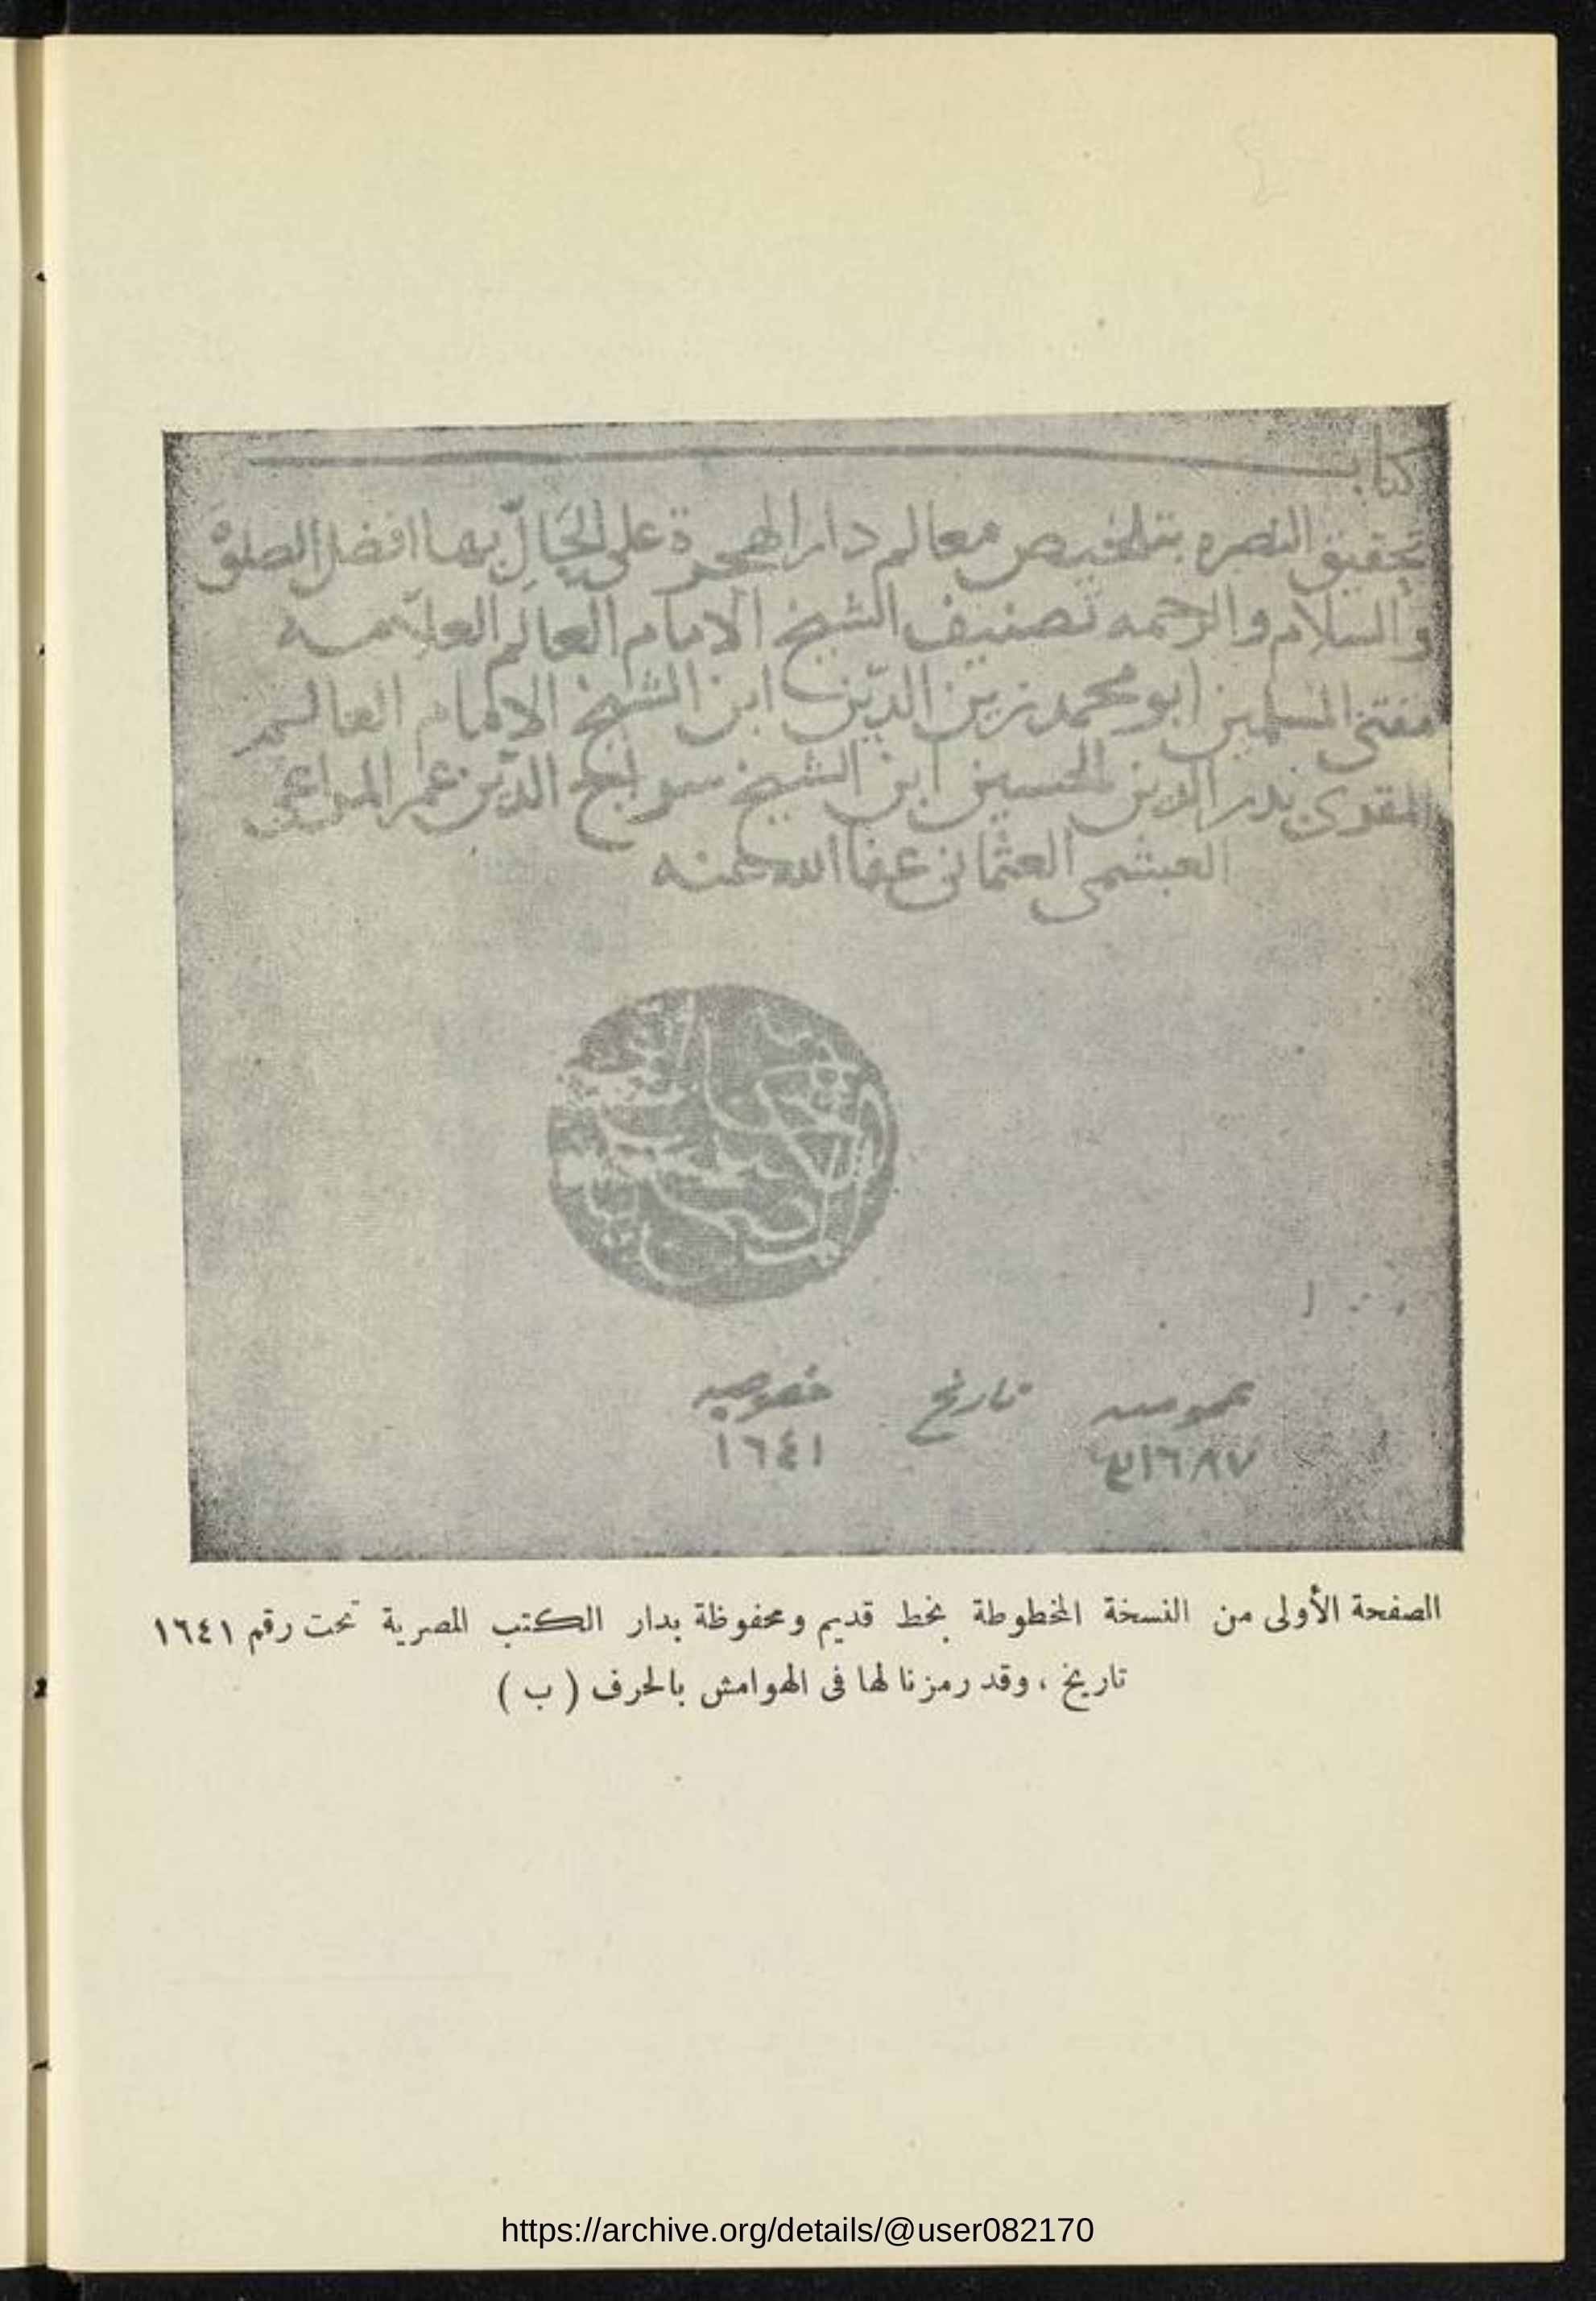 كتاب
تحقيق النصره بتلخيص معالم دار الهجرة على الحَالِّ بها افضل الصلوة
والسلام والرحمه تصنيف الشيخ الامام العالم العلامه
مفتي المسلمين ابو محمد زين الدّين ابن الشيخ الامام العالم
المقدى بدر الدين الحسين ابن الشيخ سراج الدّين عمر المراغى
العبشمى العثمانى عفا الله عنه
عموميه تاريخ خصوصيه
١٦٤١
الصفحة الأولى من النسخة المخطوطة بخط قديم ومحفوظة بدار الكتب المصرية تحت رقم ١٦٤١
تاريخ ، وقد رمزنا لها فى الهوامش بالحرف ( ب )
https://archive.org/details/@user082170